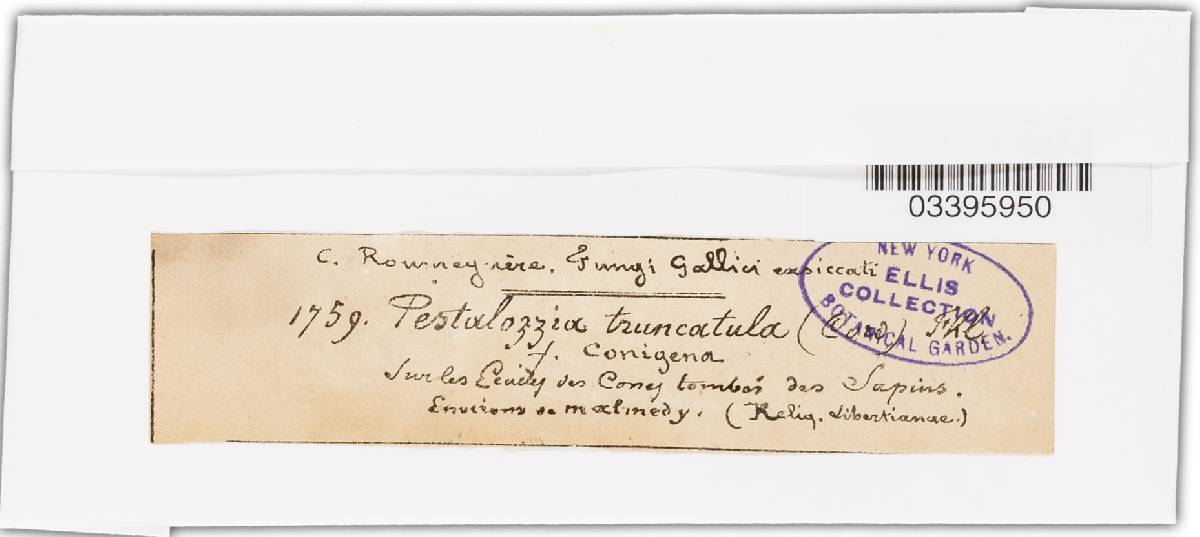 03395950
C. Roumeguère. Fungi Gallici exsiccati
NEW YORK
ELLIS
COLLECTION
BOTANICAL GARDEN.
1759. Pestalozzia truncatula (Cord) Fkl.
f. Conigena
Sur les Ecailles des Cones tombés des Sapins.
Environs de malmedy. (Reliq. Libertianae.)